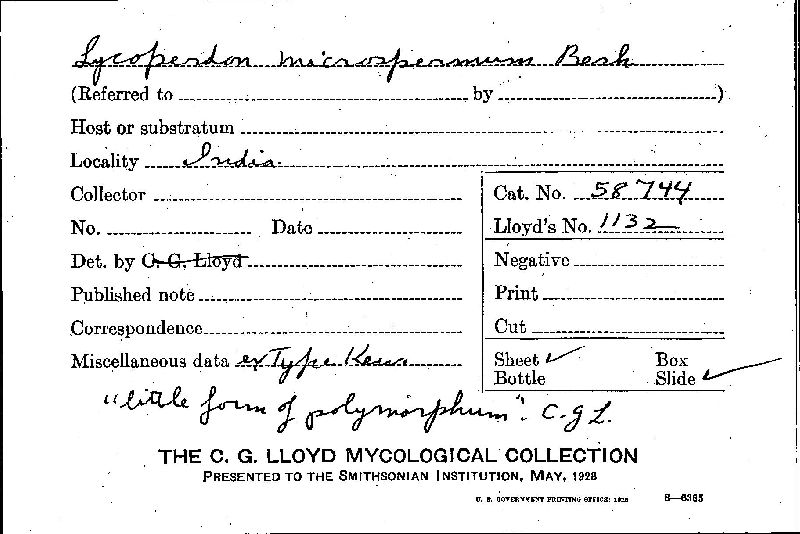 Lycoperdon microspermum Berk
(Referred to by )
Host or substratum
Locality India.
Collector
Cat. No. 58744
No. Date
Lloyd's No. 1132
Det. by C. G. Lloyd
Negative
Published note
Print
Correspondence
Cut
Miscellaneous data ex Type Kew
Sheet ✓ Box
Bottle Slide ✓
"little form of polymorphum". C. G. L.
THE C. G. LLOYD MYCOLOGICAL COLLECTION
PRESENTED TO THE SMITHSONIAN INSTITUTION, MAY, 1928
U. S. GOVERNMENT PRINTING OFFICE: 1928 8—6365